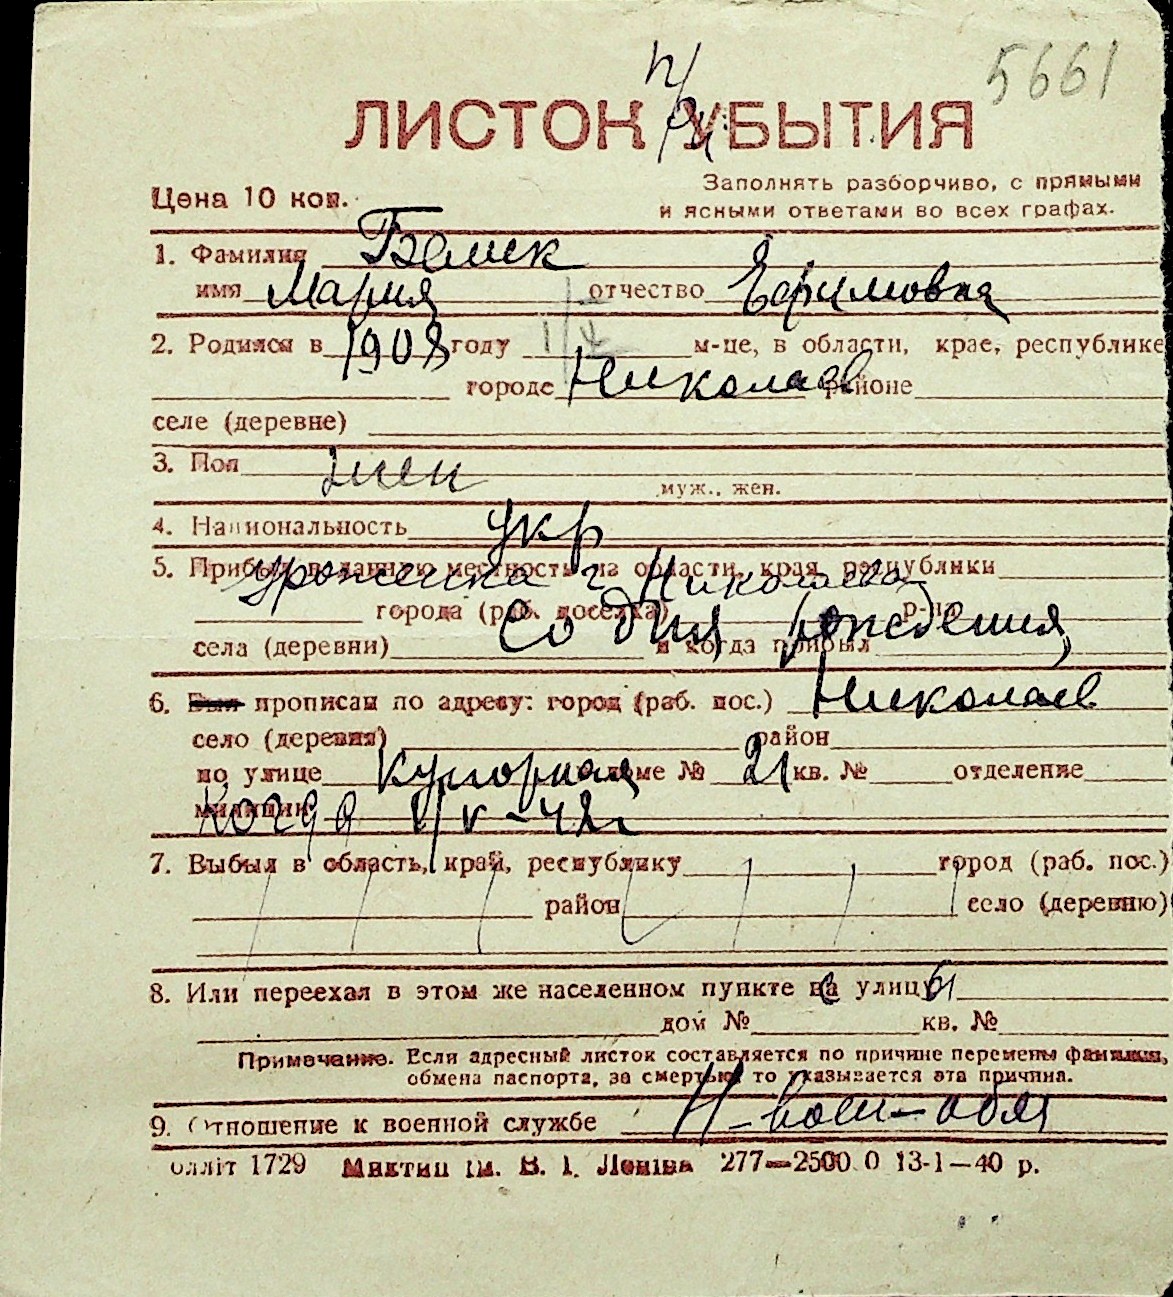 5661
ЛИСТОК УБЫТИЯ
Цена 10 коп.
Заполнять разборчиво, с прямыми
и ясными ответами во всех графах.
1. Фамилия
имя Мария отчество Ефимовна
2. Родился в 1908 году м-це, в области, крае, республике
городе Николаев районе
селе (деревне)
3. Пол жен
муж., жен.
4. Национальность укр
5. Прибыл в данную местность из области, края, республики
уроженка г Николаева
города (раб. поселка) р-на
со дня рождения
села (деревни) и когда прибыл
6. Был прописан по адресу: город (раб. пос.) Николаев
село (деревня) район
по улице доме № 21 кв. № отделение
милиции
когда 1/V-42г
7. Выбыл в область, край, республику город (раб. пос.)
район село (деревню)
8. Или переехал в этом же населенном пункте на улицу
дом № кв. №
Примечание. Если адресный листок составляется по причине перемены фамилии,
обмена паспорта, за смертью то указывается эта причина.
9. Отношение к военной службе Н-воен-обяз
олліт 1729 Миктип ім. В. І. Леніна 277—2500.0 13-1—40 р.